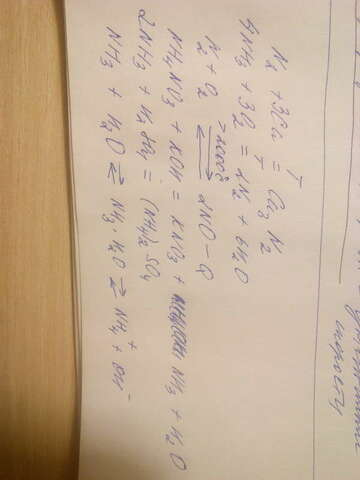 N₂ + 3Ca =ᵀ Ca₃N₂
4NH₃ + 3O₂ =ᵀ 2N₂ + 6H₂O
N₂ + O₂ ⇌ 2NO - Q
NH₄NO₃ + KOH = KNO₃ + NH₃ + H₂O
2NH₃ + H₂SO₄ = (NH₄)₂SO₄
NH₃ + H₂O ⇌ NH₃·H₂O ⇌ NH₄⁺ + OH⁻